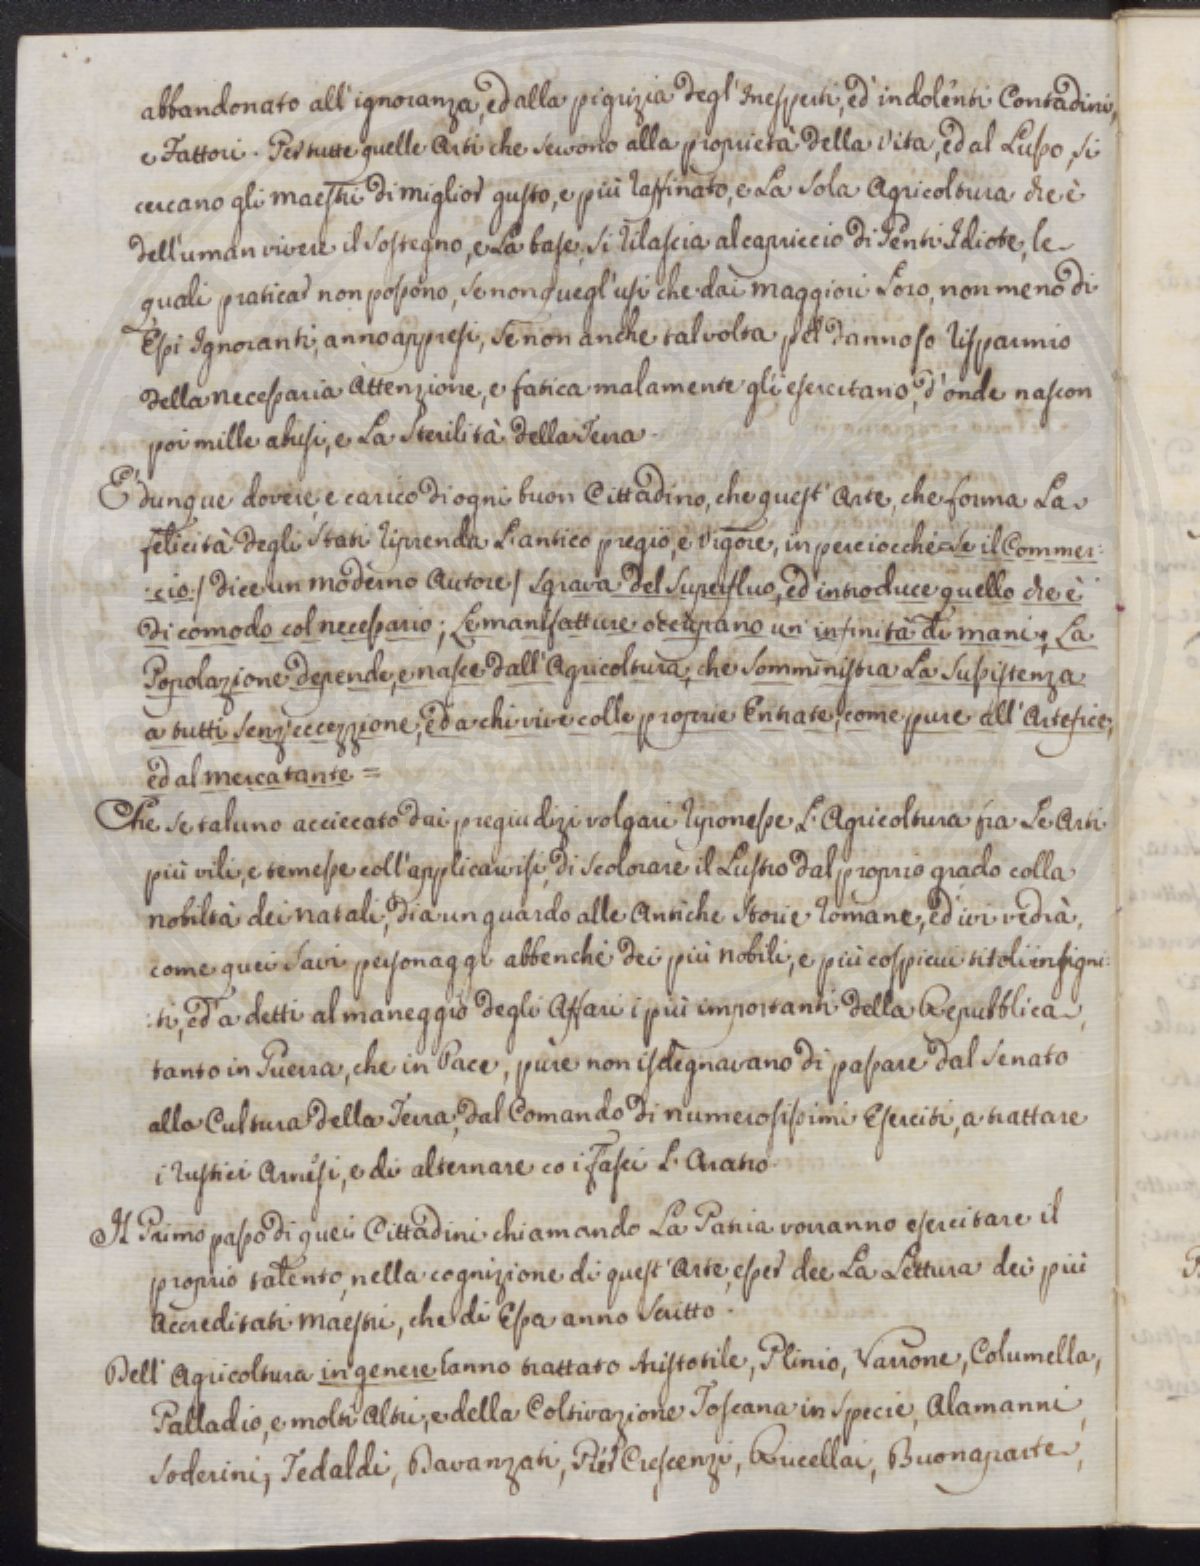 abbandonato all'ignoranza, ed alla pigrizia degl'Inesperti, ed indolenti Contadini,
e Fattori. Per tutte quelle Arti che servono alla proprietà della vita, ed al Lusso, si
cercano gli maestri di miglior gusto, e più raffinato, e La sola Agricoltura che è
dell'uman vivere il sostegno, e La base, si rilascia al capriccio di Genti Idiote, le
quali praticar non possono, se non quegl'usi che dai maggiori Loro, non meno di
Essi Ignoranti, anno appresi, se non anche talvolta pel dannoso risparmio
della necessaria Attenzione, e fatica malamente gli esercitano, d'onde nascon
poi mille abusi, e La sterilità della Terra.
E' dunque dovere, e carico di ogni buon Cittadino, che quest'Arte, che forma La
felicità degli Stati riprenda L'antico pregio, e vigore, inperciocchè = se il Commer:
:cio / dice un moderno Autore / sgrava del superfluo, ed introduce quello che è
di comodo col necessario; Le manifatture occupano un'infinità di mani; La
Popolazione depende, e nasce dall'Agricoltura, che somministra La sussistenza
a tutti senz'eccezzione, ed a chi vive colle proprie Entrate, come pure all'Artefice,
ed al mercatante =
Che se taluno acciecato dai pregiudizi volgari riponesse L'Agricoltura fra Le Arti
più vili, e temesse coll'applicarvisi, di scolorare il Lustro dal proprio grado colla
nobiltà dei natali, dia un guardo alle Antiche Storie romane, ed ivi vedrà,
come quei savi personaggi abbenchè dei più nobili, e più cospicui titoli insigni:
:ti, ed a detti al maneggio degli Affari i più importanti della Repubblica,
tanto in Guerra, che in Pace, pure non isdegnavano di passare dal Senato
alla Cultura della Terra, dal Comando di numerosissimi Eserciti, a trattare
i rustici Arnesi, e di alternare co i Fasci L'Aratro.
Il Primo passo di quei Cittadini chiamando La Patria vorranno esercitare il
proprio talento, nella cognizione di quest'Arte, esser dee La Lettura dei più
Accreditati maestri, che di Essa anno scritto.
Dell'Agricoltura in genere anno trattato Aristotile, Plinio, Varrone, Columella,
Palladio, e molti Altri, e della Coltivazione Toscana in specie, Alamanni,
Soderini, Tedaldi, Davanzati, Pier Crescenzi, Rucellai, Buonaparte,